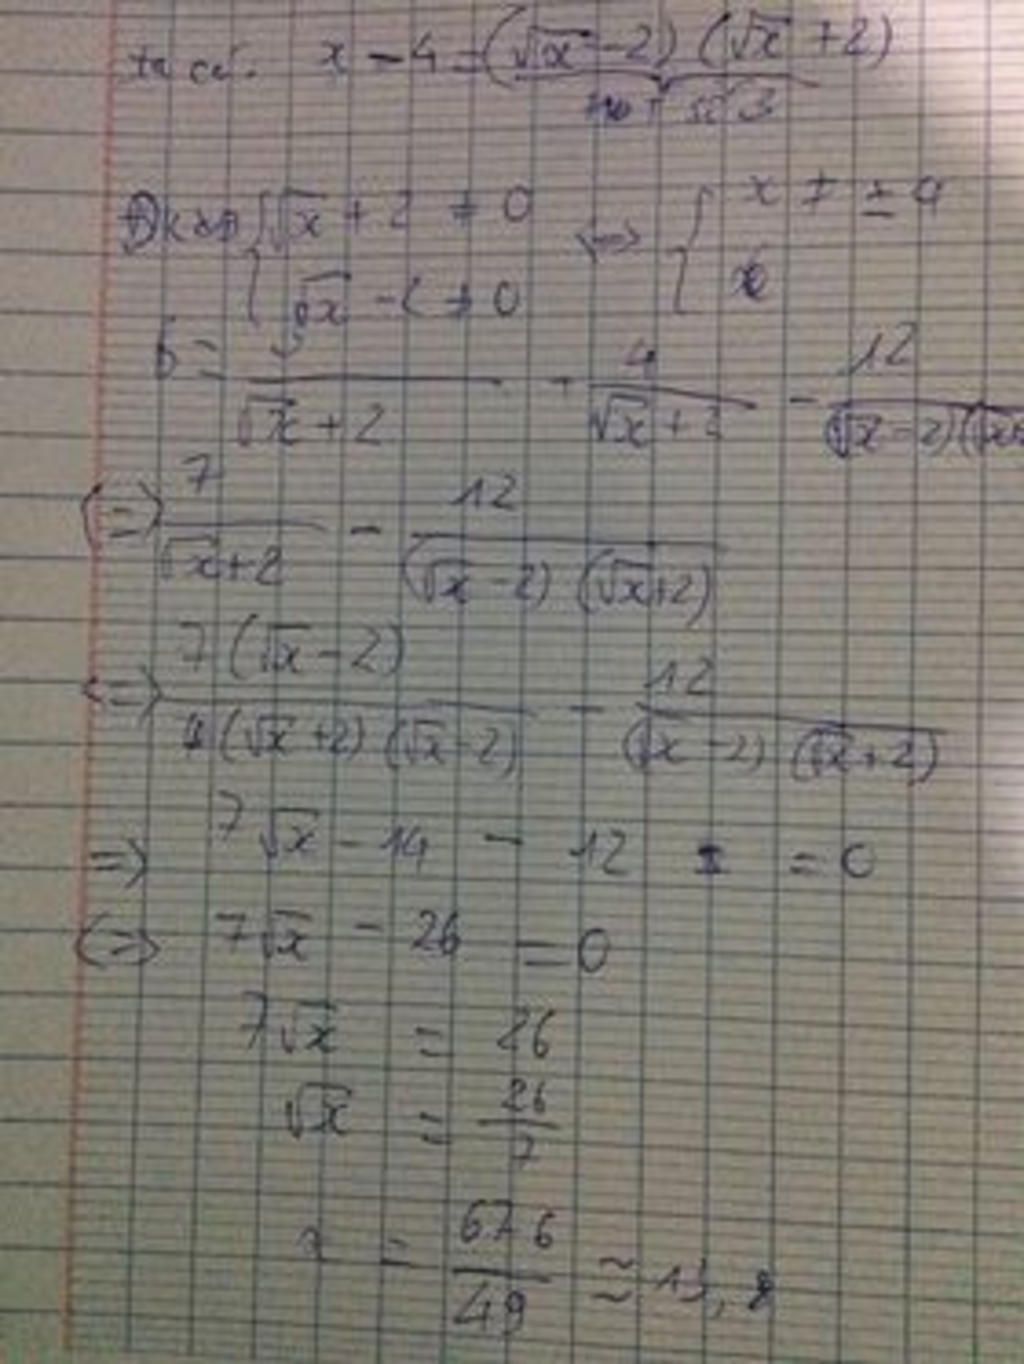 ta có: x - 4 = (√x - 2) (√x + 2)
ĐKXĐ { √x + 2 ≠ 0 <=> { x ≠ ± 4
√x - 2 ≠ 0 x
√x + 2 4/(√x + 2) - 12/((√x - 2)(√x
<=> 7/(√x + 2) - 12/((√x - 2) (√x + 2))
<=> 7(√x - 2)/((√x + 2) (√x - 2)) - 12/((√x - 2) (√x + 2))
=> 7√x - 14 - 12 = 0
<=> 7√x - 26 = 0
7√x = 26
√x = 26/7
x = 676/49 ≈ 13,8